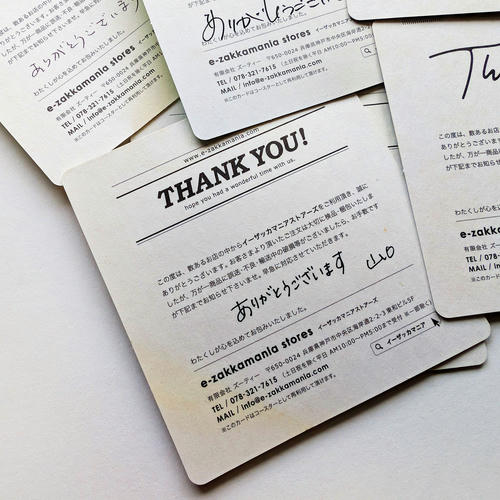 www.e-zakkamania.com
THANK YOU!
hope you had a wonderful time with us.
この度は、数あるお店の中からイーザッカマニアストアーズをご利用頂き、誠に
ありがとうございます。お客さまより頂いたご注文は大切に検品・梱包いたしま
したが、万が一商品に誤送・不良・輸送中の破損等がございましたら、お手数です
が下記までお知らせ下さいませ。早急に対応させていただきます。
ありがとうございます
わたくしが心を込めてお包みいたしました。
e-zakkamania stores イーザッカマニアストアーズ
有限会社 ズーティー 〒650-0024 兵庫県神戸市中央区海岸通2-2-3東和ビル5F
TEL / 078-321-7615 (土日祝を除く平日 AM10:00~PM5:00まで受付 ※一部除く
MAIL / info@e-zakkamania.com
※このカードはコースターとして再利用して頂けます。
イーザッカマニア
ありがとうございま
わたくしが心を込めてお包みいたしました。
e-zakkamania stores
有限会社 ズーティー
TEL / 078-321-7615
MAIL / info@e-zakkamania.com
※このカードはコースターとして再利用して頂けます。
ありがとうございま
わたくしが心を込めてお包みいたしました。
e-zakkamania stores イーザッカマニアストアーズ
有限会社 ズーティー 〒650-0024 兵庫県神戸市中央区海岸通
TEL / 078-321-7615 (土日祝を除く平日 AM10:00~PM
MAIL / info@e-zakkamania.com
※このカードはコースターとして再利用して頂けます。
この度は、数あるお
ありがとうございます
したが、万が一商品
が下記までお知らせ
わたくしが心を込め
e-zakka
有限会社
TEL / 078
MAIL / in
※このカード